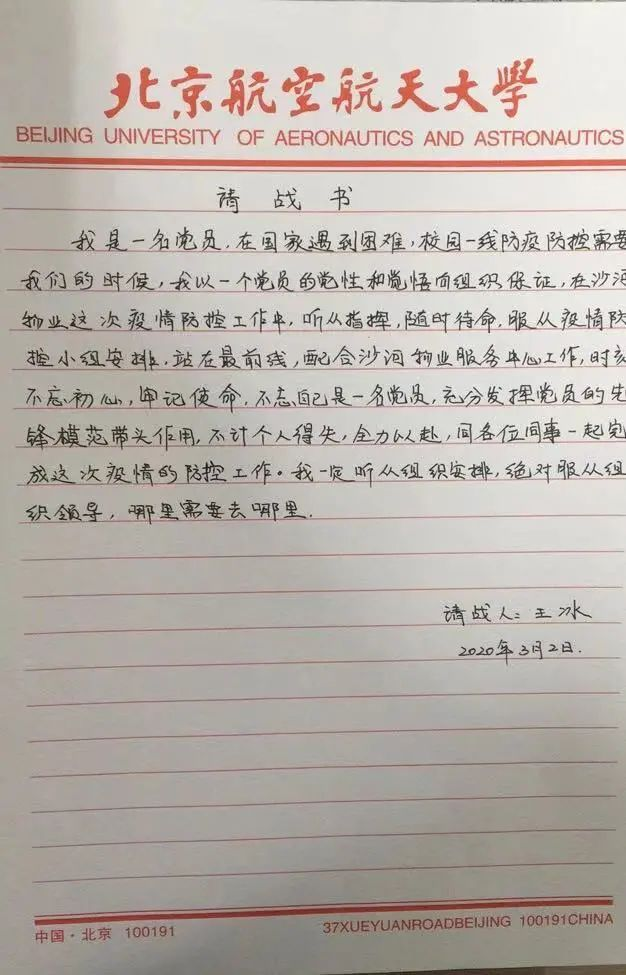 北京航空航天大學
BEIJING UNIVERSITY OF AERONAUTICS AND ASTRONAUTICS
请战书
我是一名党员,在国家遇到困难,校园一线防疫防控需要
我们的时候,我以一个党员的党性和觉悟向组织保证,在沙河
物业这次疫情防控工作中,听从指挥,随时待命,服从疫情防
控小组安排,站在最前线,配合沙河物业服务中心工作,时刻
不忘初心,牢记使命,不忘自己是一名党员,充分发挥党员的先
锋模范带头作用,不计个人得失,全力以赴,同各位同事一起完
成这次疫情的防控工作。我一定听从组织安排,绝对服从组
织领导,哪里需要去哪里.
请战人:王冰
2020年3月2日.
中国·北京 100191
37XUEYUANROADBEIJING 100191CHINA